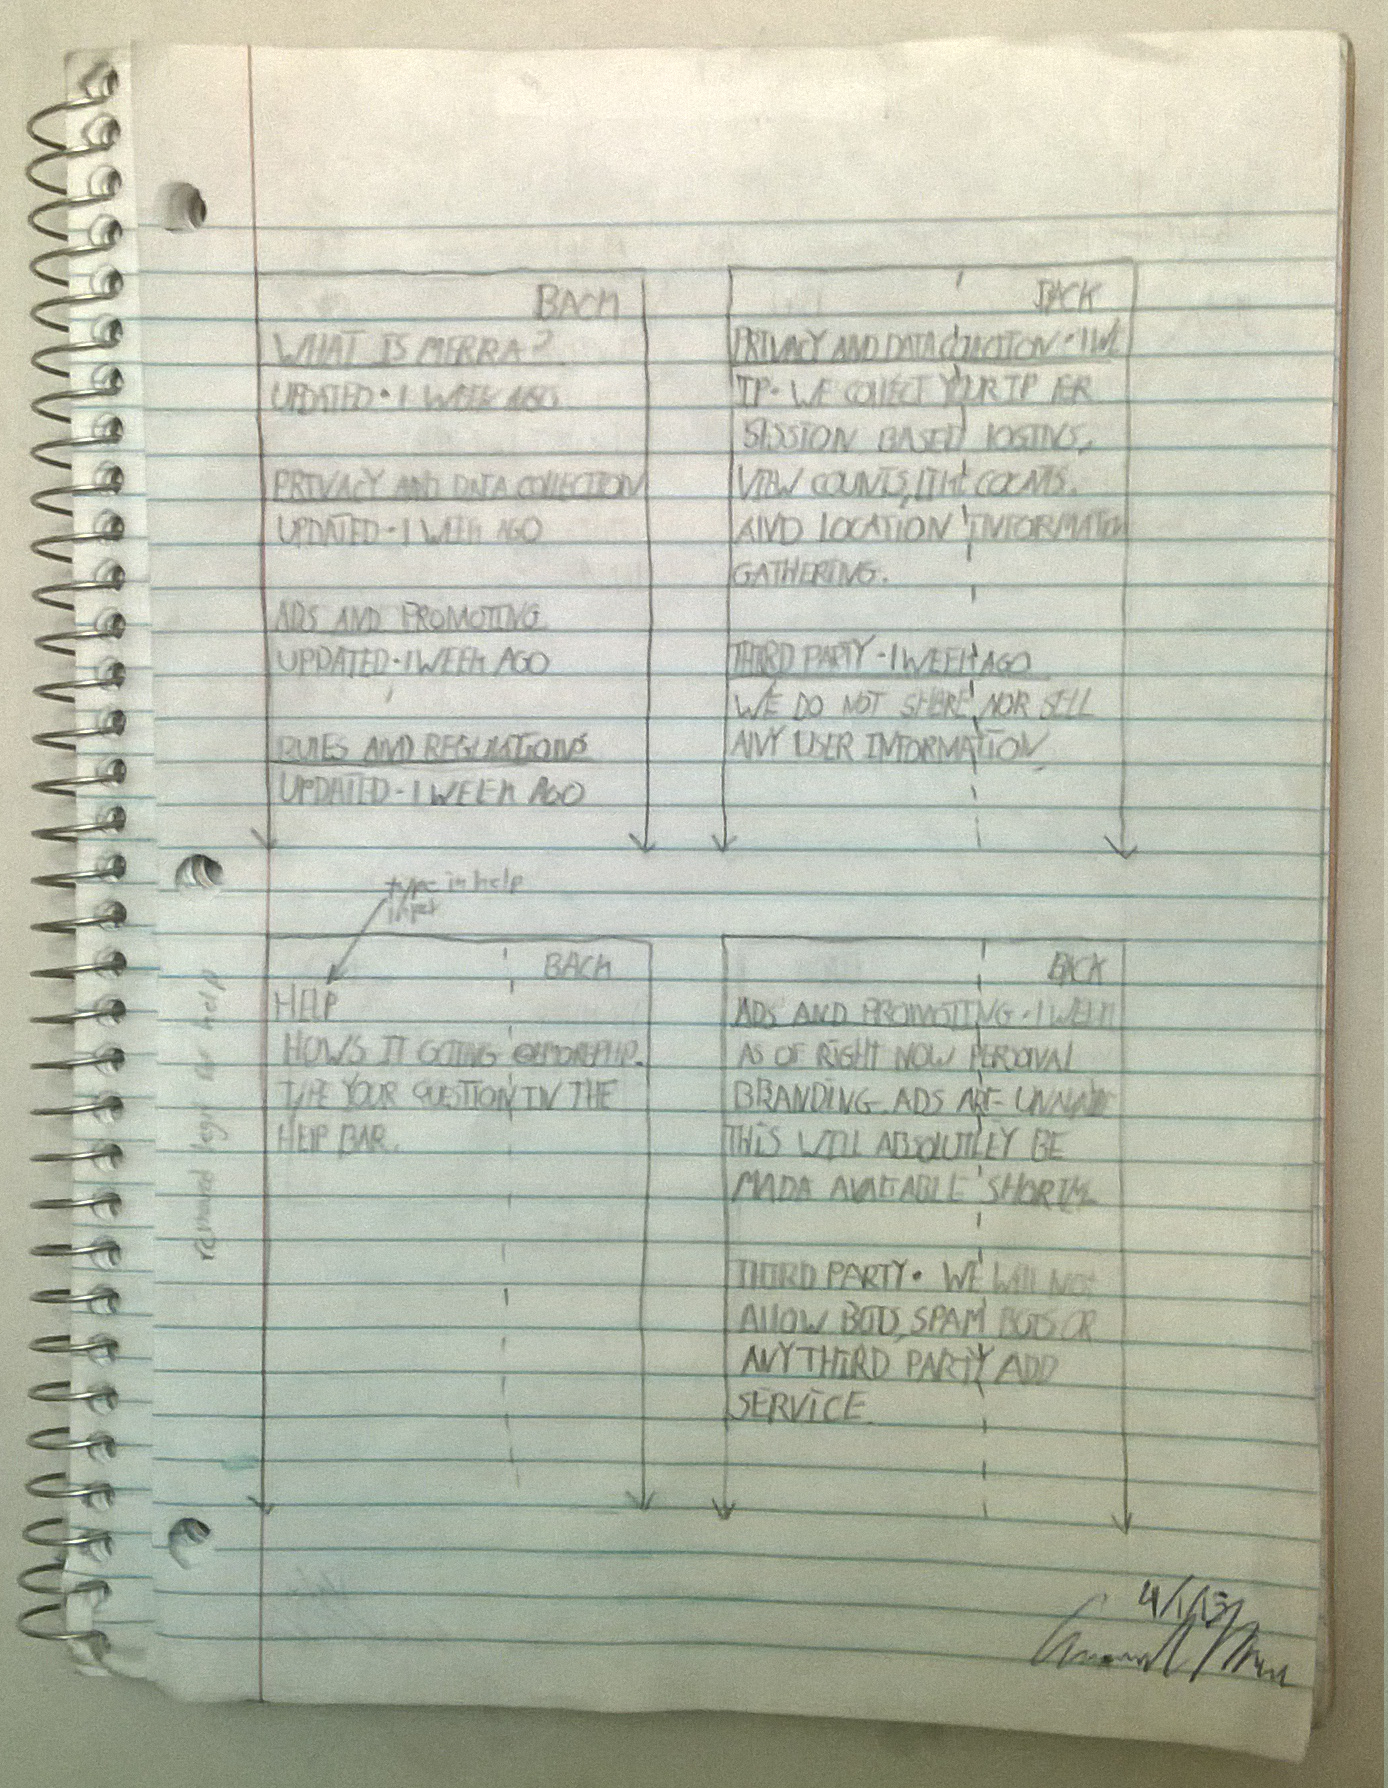 BACK
WHAT IS MERRA?
UPDATED · 1 WEEK AGO
PRIVACY AND DATA COLLECTION
UPDATED · 1 WEEK AGO
ADS AND PROMOTING
UPDATED · 1 WEEK AGO
RULES AND REGULATIONS
UPDATED · 1 WEEK AGO
BACK
PRIVACY AND DATA COLLECTION · 1 WE
IP · WE COLLECT YOUR IP FER
SESSION BASED LOGINS,
VIEW COUNTS, LIKE COUNTS.
AND LOCATION INFORMATION
GATHERING.
THIRD PARTY · 1 WEEK AGO
WE DO NOT SHERE NOR SELL
ANY USER INFORMATION.
type in help
input
BACK
HELP
HOWS IT GOING
TYPE YOUR QUESTION IN THE
HELP BAR.
removed for help
BACK
ADS AND PROMOTING · 1 WEEK
AS OF RIGHT NOW PERSONAL
BRANDING ADS ARE
THIS WILL ABSOLUTLEY BE
MADA AVAILABLE SHORTLY
THIRD PARTY · WE WILL NOT
ALLOW BOTS, SPAM BOTS OR
ANY THIRD PARTY ADD
SERVICE.
4/1/13